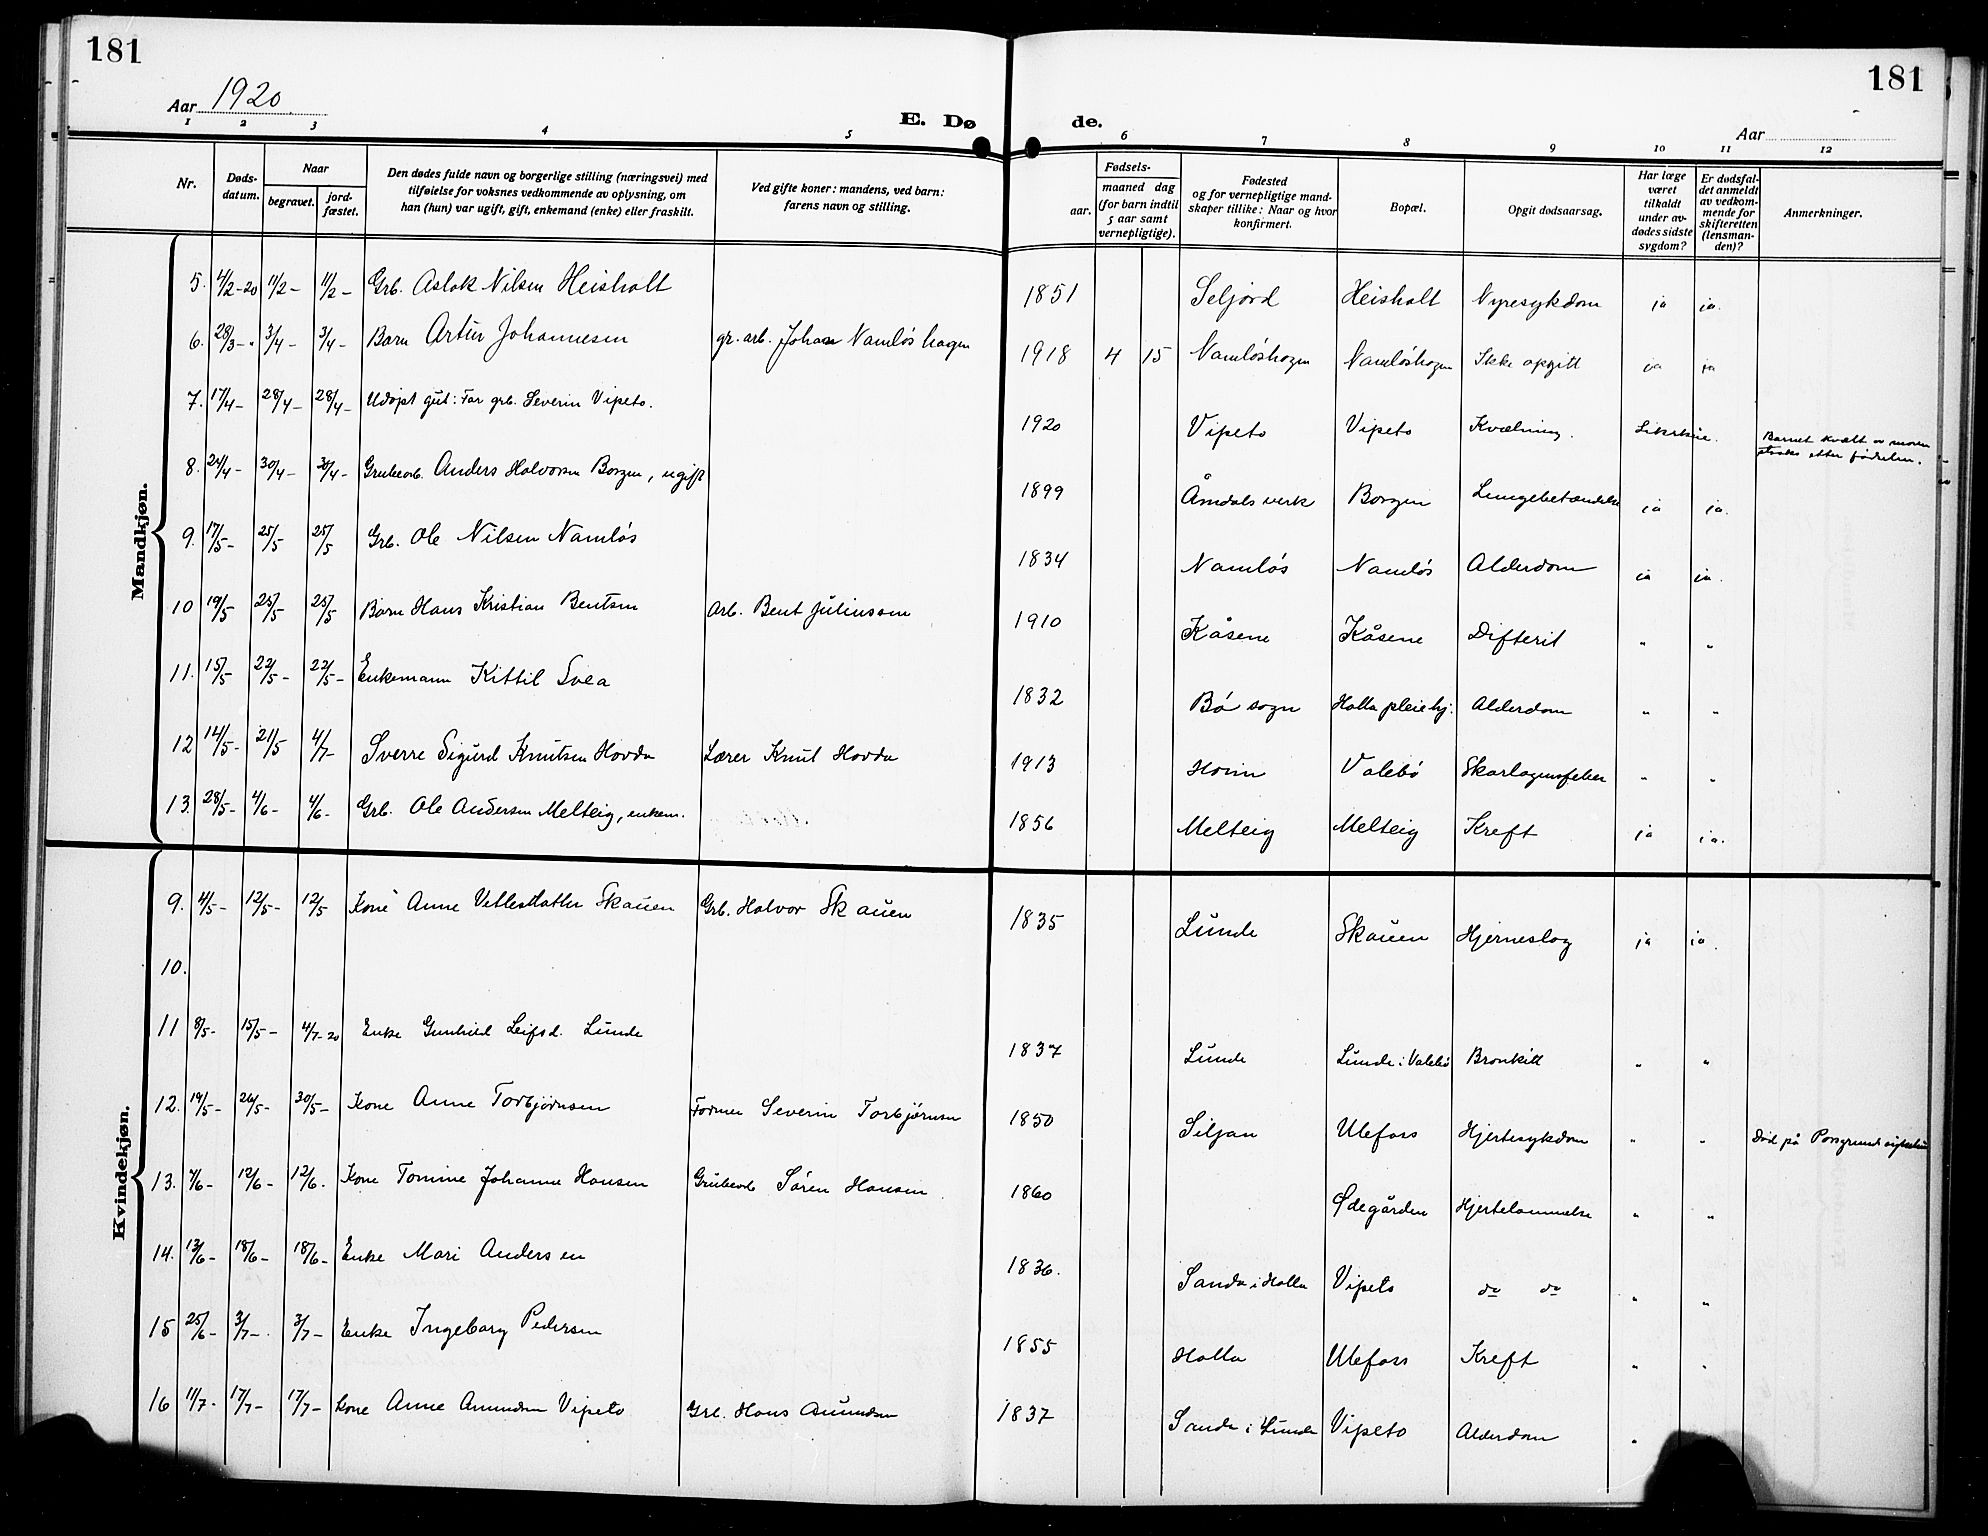 181
181
Aar 1920
E. Dø de.
Aar
1 2 3 4 5 6 7 8 9 10 11 12
Nr.
Døds-
datum.
Naar
begravet.
jord-
fæstet.
Den dødes fulde navn og borgerlige stilling (næringsvei) med
tilføielse for voksnes vedkommende av oplysning, om
han (hun) var ugift, gift, enkemand (enke) eller fraskilt.
Ved gifte koner: mandens, ved barn:
farens navn og stilling.
Fødsels-
aar.
maaned dag
(for barn indtil
5 aar samt
vernepligtige).
Fødested
og for vernepligtige mand-
skaper tillike: Naar og hvor
konfirmert.
Bopæl.
Opgit dødsaarsag.
Har læge
været
tilkaldt
under av-
dødes sidste
sygdom?
Er dødsfal-
det anmeldt
av vedkom-
mende for
skifteretten
(lensman-
den)?
Anmerkninger.
Mandkjøn.
5. 4/2-20 11/2- 11/2- Grb. Aslak Nilsen Heisholt 1851 Seljord Heisholt Nyresykdom ja ja.
6. 28/3-" 3/4- 3/4- Barn Artur Johannesen gr. arb. Johan Namløshagen 1918 4 15 Namløshagen Namløshagen Ikke opgitt ja ja
7. 17/4- 28/4- 28/4- Udøpt gut: Far grb. Severin Vipeto. 1920 Vipeto Vipeto Kvælning. Likskue. Barnet kvalt av moren
straks etter fødselen.
8. 24/4- 30/4- 30/4- Grubearb. Anders Halvorsen Borgen, ugift 1899 Åmdals verk Borgen Lungebetændelse ja ja.
9. 17/5- 25/5 25/5 Grb. Ole Nilsen Namløs 1834 Namløs Namløs Alderdom ja ja.
10 19/5 25/5 25/5 Barn Hans Kristian Bentsen Arb. Bent Juliussen 1910 Kåsene Kåsene Difterit " "
11. 15/5 22/5- 22/5- Enkemann Kittil Svea 1832 Bø sogn Holla pleiehj. Alderdom " "
12 14/5- 21/5 4/7- Sverre Sigurd Knutsen Hovda Lærer Knut Hovda 1913 Valebø Skarlagensfeber " "
13. 28/5- 4/6- 4/6- Grb. Ole Andersen Melteig, enkem. 1856 Melteig Melteig Kreft ja ja.
Kvindekjøn.
9. 4/5- 12/5- 12/5 Kone Anne Vetlesdatter Skauen Grb. Halvor Skauen 1835 Lunde Skauen Hjerneslag ja ja.
10.
11 8/5- 15/5- 4/7-20 Enke Gunhild Leifsd. Lunde 1837 Lunde Lunde i Valebø Bronkitt " "
12. 19/5- 26/5- 30/5- Kone Anne Torbjørnsen Former Severin Torbjørnsen 1850 Siljan Ulefoss Hjertesykdom " " Død på Porsgrund sykehus
13. 7/6- 12/6- 12/6. Kone Tomine Johanne Hansen Grubearb Søren Hansen. 1860 Ødegården Hjertelammelse " "
14. 13/6- 18/6- 18/6- Enke Mari Andersen 1836. Sanda i Holla Vipeto do do " "
15 25/6- 3/7-. 3/7- Enke Ingeborg Pedersen 1855 Holla Ulefoss Kreft " "
16 11/7. 17/7- 17/7- Kone Anne Amundsen Vipeto Grb. Hans Amundsen 1837 Sanda i Lunde Vipeto Alderdom "